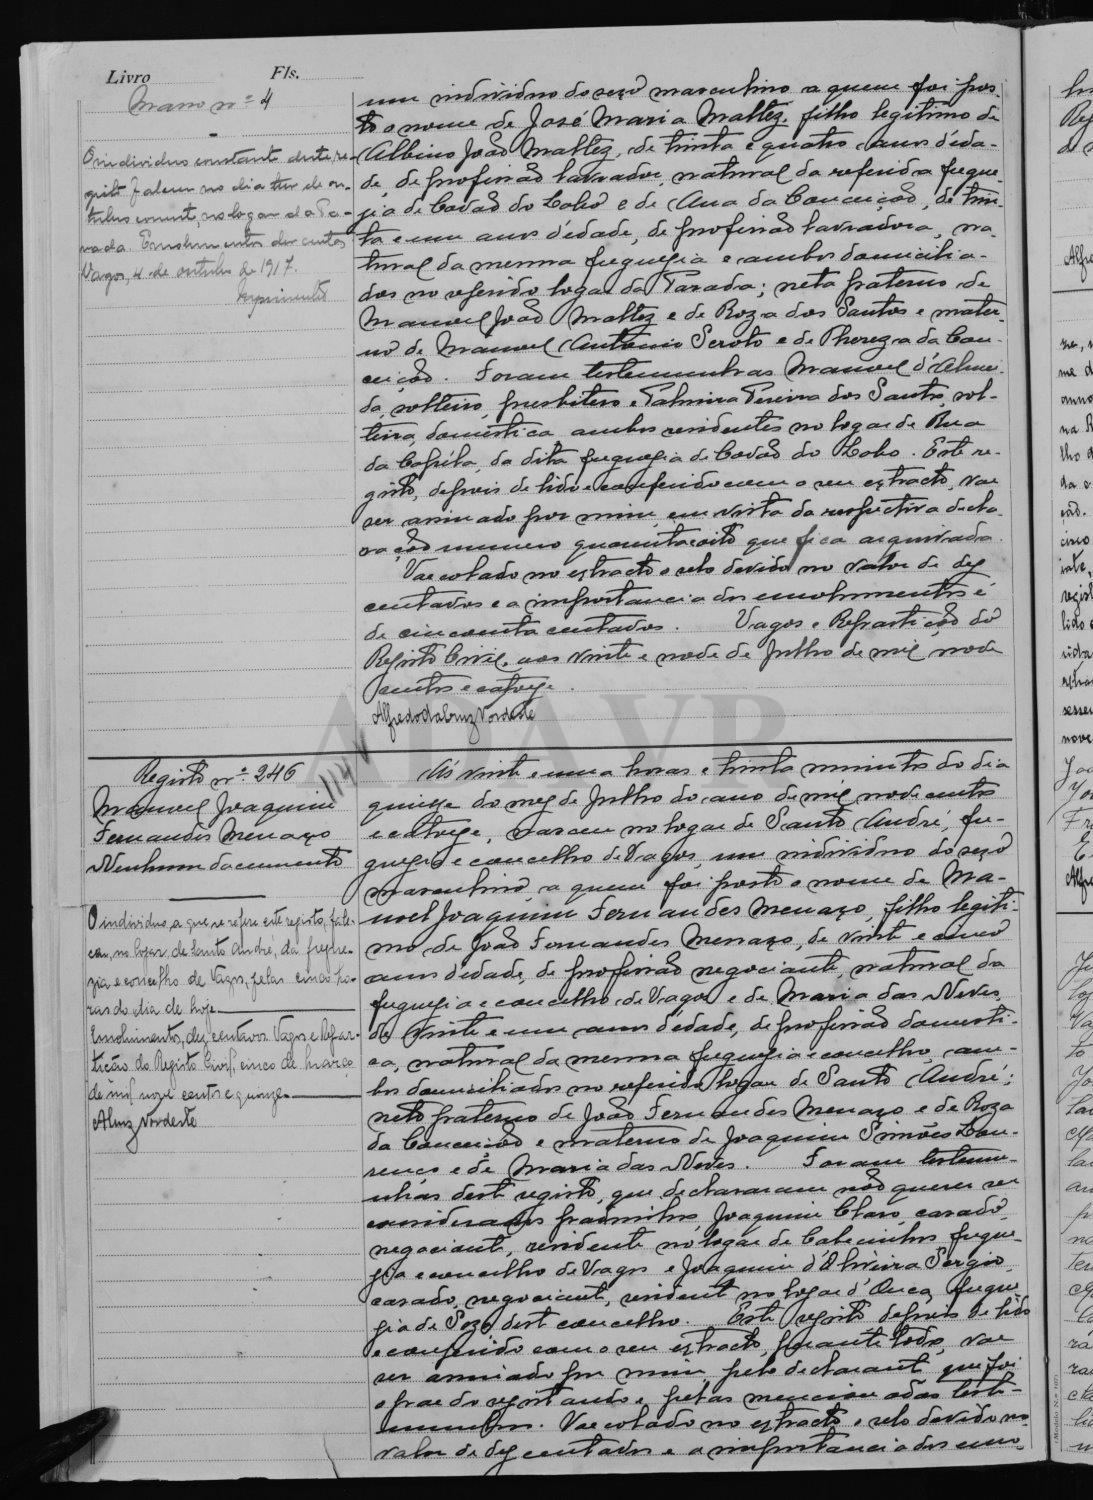 Livro Fls.
Maço nº 4
O individuo constante deste re-
gisto faleceu no dia tres de ou-
tubro corrente, no logar da Pa-
rada. Emolumentos dez centos
Vagos, 4 de outubro de 1917.
um individuo do sexo masculino a quem foi pos-
to o nome de José Maria Maltez, filho legitimo de
Albino João Maltez, de trinta e quatro anos d'eda-
de, de profissão lavrador, natural da referida fregue-
zia de Covão do Lobo e de Ana da Conceição, de trin-
ta e um anos d'edade, de profissão lavradora, na-
tural da mesma freguesia e ambos domicilia-
dos no referido logar da Parada; neto paterno de
Manuel João Maltez e de Roza dos Santos e mater-
no de Manuel Antonio Seroto e de Thereza da Con-
ceição. Foram testemunhas Manuel d'Almei-
da, solteiro, presbitero e Palmira Pereira dos Santos, sol-
teira, domestica, ambos residentes no logar de Rua
da Capéla, da dita freguesia de Covão do Lobo. Este re-
gisto, depois de lido e conferido com o seu extracto, vae
ser assinado por mim, em vista da respectiva decla-
ração numero quarenta e oito que fica arquivada.
Vae colado no extracto o selo devido no valor de dez
centavos e a importancia dos emolumentos é
de cincoenta centavos. Vagos e Repartição do
Registo Civil, aos vinte e nove de Julho de mil nove
centos e catorze.
Alfredo da Cruz Nordeste
Registo nº 246
Manuel Joaquim
Fernandes Menaço
Nenhum documento
O individuo, a que se refere este registo, fale-
ceu, no logar de Santo André, da fregue-
zia e concelho de Vagos, pelas cinco ho-
ras do dia de hoje.
Emolumentos, dez centavos. Vagos e Repar-
tição do Registo Civil, cinco de março
de mil nove centos e quinze.
ACruz Nordeste
Ás vinte e uma horas e trinta minutos do dia
quinze do mez de Julho do ano de mil nove centos
e catorze, nasceu no logar de Santo André, fre-
guezia e concelho de Vagos, um individuo do sexo
masculino, a quem foi posto o nome de Ma-
nuel Joaquim Fernandes Menaço, filho legiti-
mo de João Fernandes Menaço, de vinte e cinco
anos d'edade, de profissão negociante, natural da
freguesia e concelho de Vagos e de Maria das Neves,
de vinte e um anos d'edade, de profissão domesti-
ca, natural da mesma freguesia e concelho, am-
bos domiciliados no referido logar de Santo André;
neto paterno de João Fernandes Menaço e de Roza
da Conceição e materno de Joaquim Simões Lou-
renço e de Maria das Neves. Foram testemu-
nhas deste registo, que declararam não querer ser
considerados padrinhos, Joaquim Claro, casado,
negociante, residente no logar de Cabecinhas, fregue-
zia e concelho de Vagos e Joaquim d'Oliveira Sergio,
casado, negociante, residente no logar d'Ouca, fregue
zia de Soza, deste concelho. Este registo depois de lido
e conferido com o seu extracto, perante todos, vae
ser assinado por mim, pelo declarante que foi
o pae do registando e pelas mencionadas teste-
munhas. Vae colado no extracto o selo devido no
valor de dez centavos e a importancia dos emo-